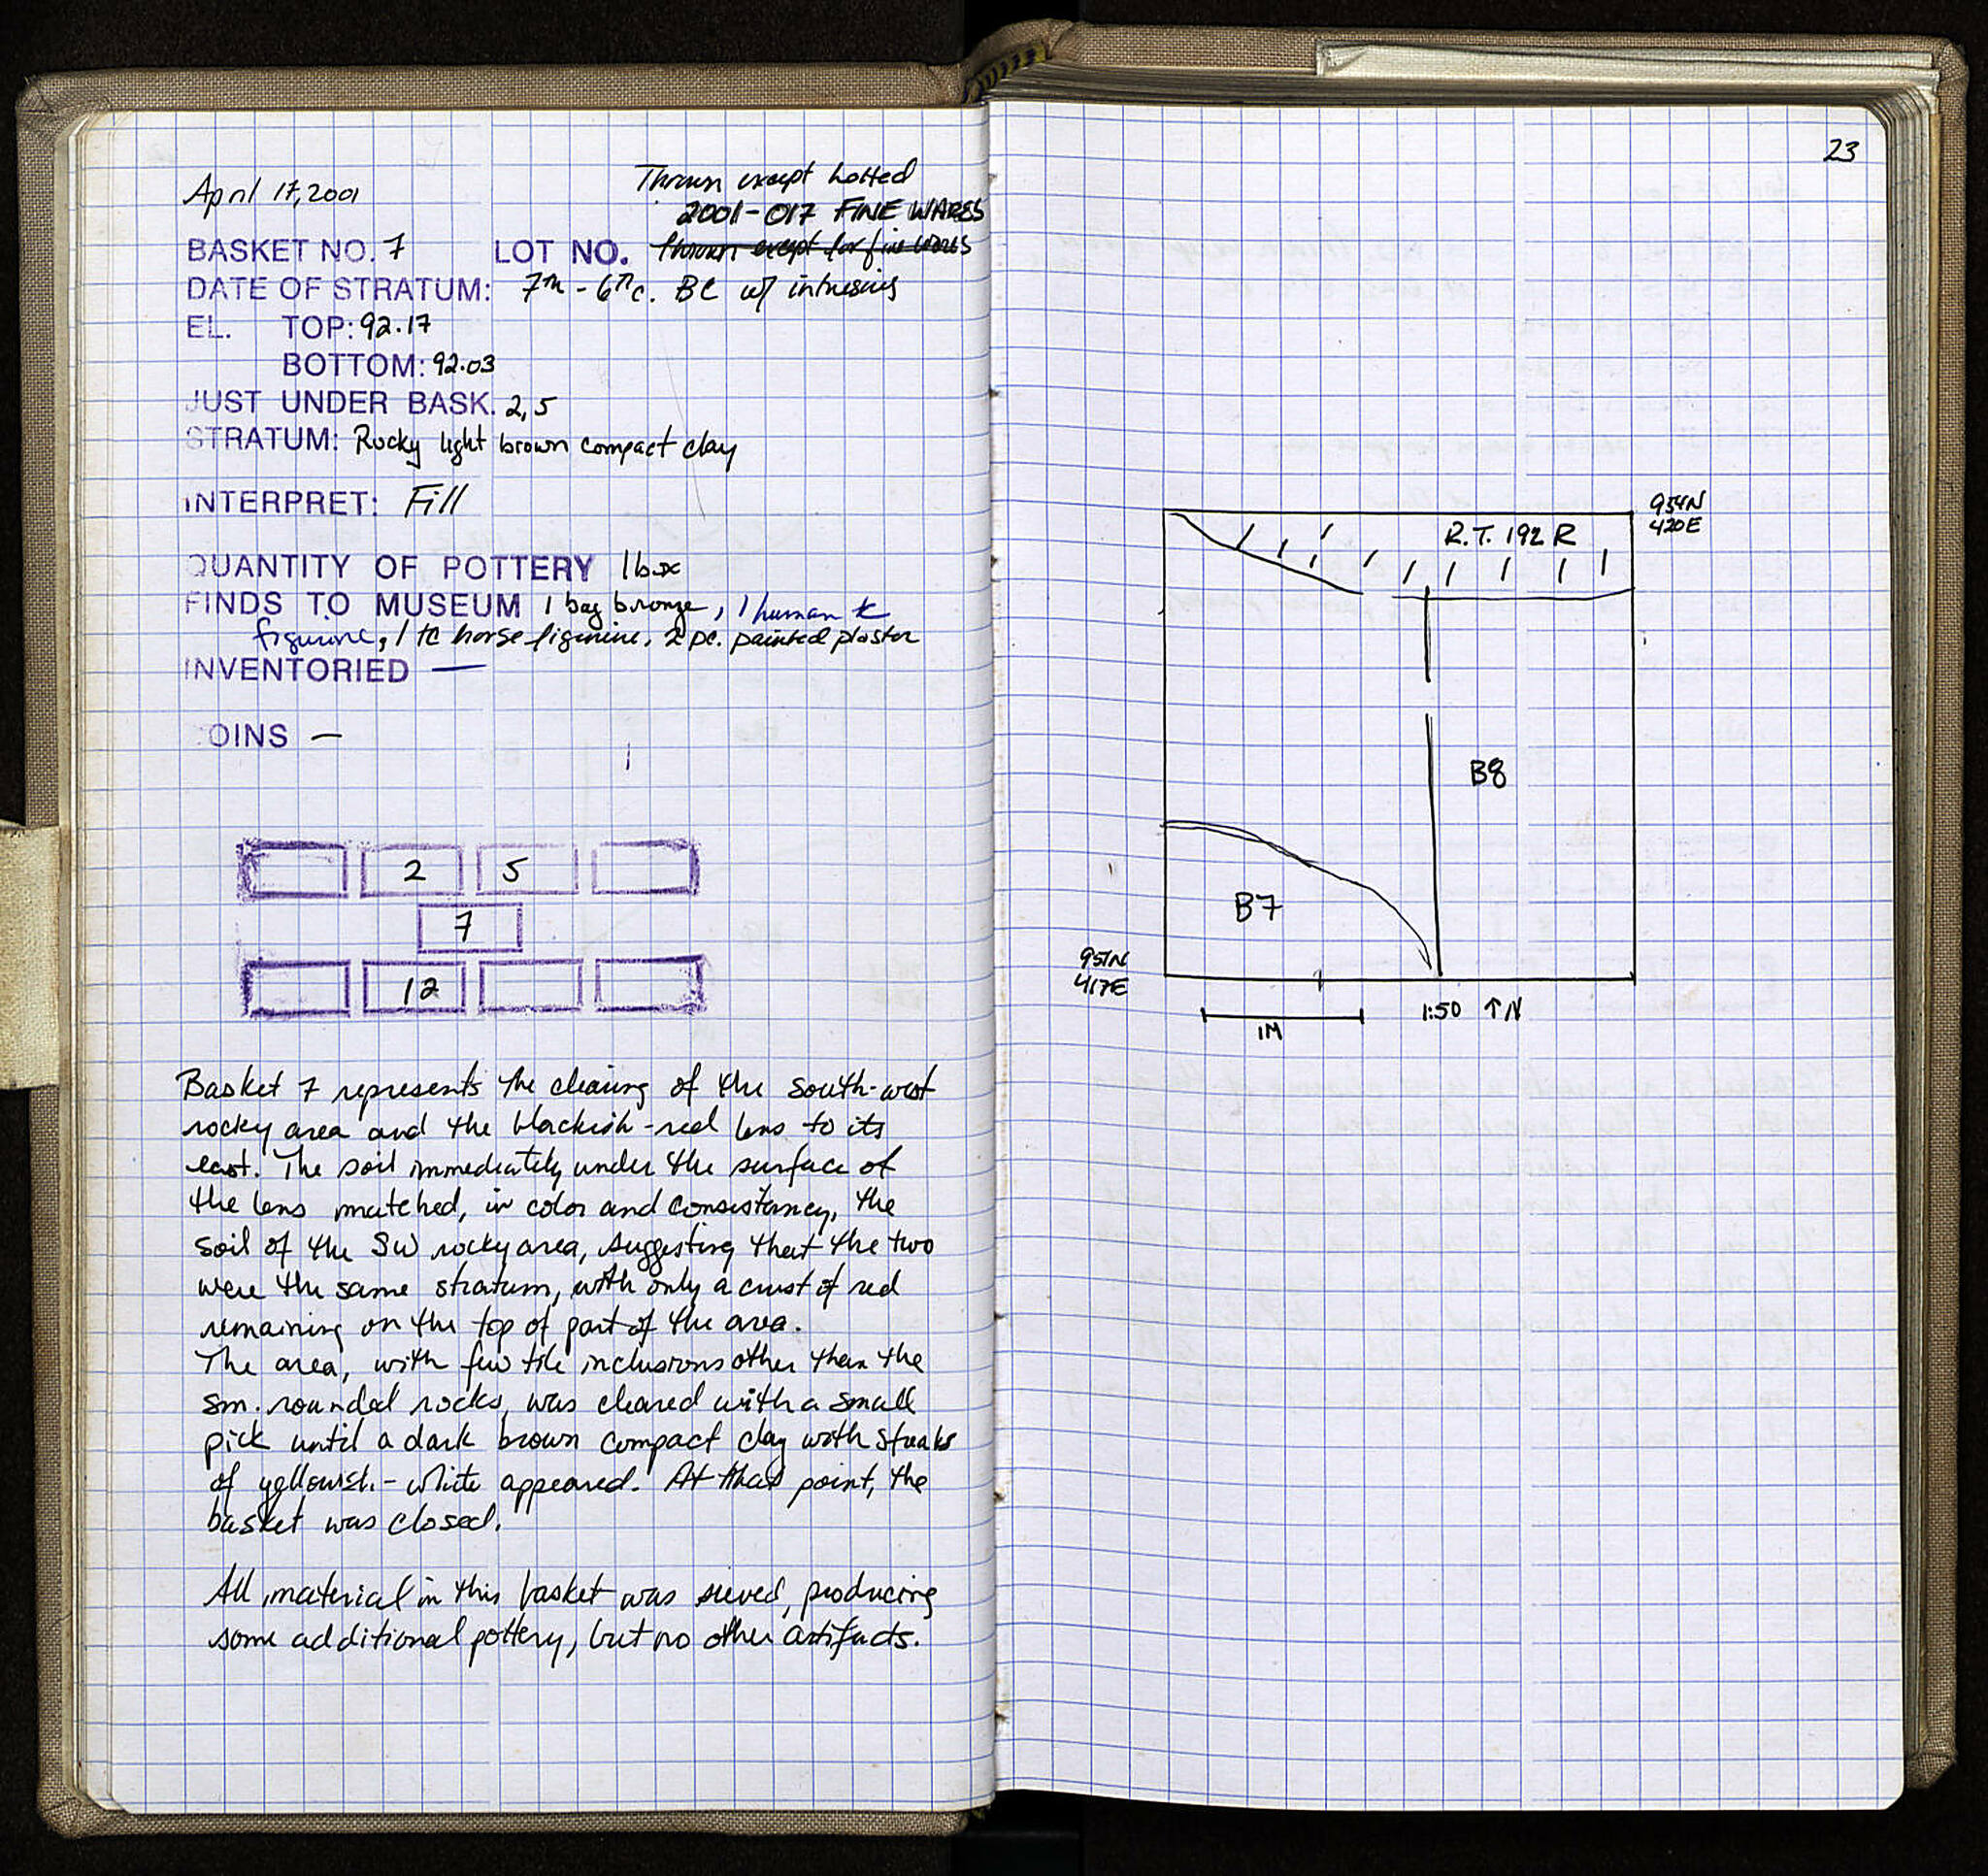 April 17, 2001
Thrown except lotted
2001-017 FINE WARES
BASKET NO. 7 LOT NO. thrown except for fine wares
DATE OF STRATUM: 7th - 6th c. BC w/ intrusions
EL. TOP: 92.17
BOTTOM: 92.03
JUST UNDER BASK. 2, 5
STRATUM: Rocky light brown compact clay
INTERPRET: Fill
QUANTITY OF POTTERY 1 box
FINDS TO MUSEUM 1 bag bronze, 1 human tc
figurine, 1 tc horse figurine, 2 pc. painted plaster
INVENTORIED —
COINS —
2 5
7
12
Basket 7 represents the clearing of the south-west
rocky area and the blackish-red lens to its
east. The soil immediately under the surface of
the lens matched, in color and consistency, the
soil of the SW rocky area, suggesting that the two
were the same stratum, with only a crust of red
remaining on the top of part of the area.
The area, with few tile inclusions other than the
sm. rounded rocks, was cleared with a small
pick until a dark brown compact clay with streaks
of yellowish-white appeared. At that point, the
basket was closed.
All material in this basket was sieved, producing
some additional pottery, but no other artifacts.
23
954N
420E
R.T. 192 R
B8
B7
951N
417E
1:50 ↑N
1M